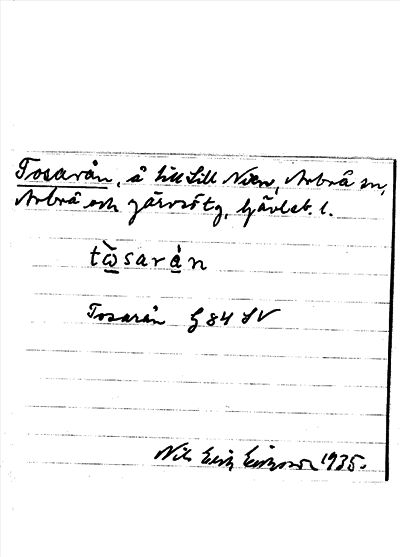 Tosarån, å till Lill Nien, Arbrå sn,
Arbrå och Järvsö tg, Gävleb. l.
tὼ̱sarà̱n
Tosarån G 84 SV
Nils Erik Eriksson 1935.